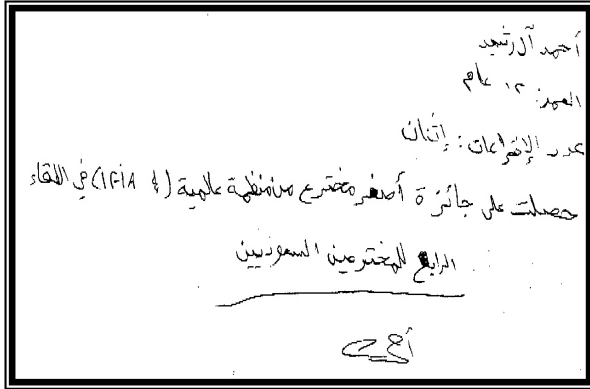 أحمد آل رشيد
العمر: ١٢ عام
عدد الإختراعات: إثنان
حصلت على جائزة أصغر مخترع من منظمة عالمية (IFIA) في اللقاء
الرابع للمخترعين السعوديين